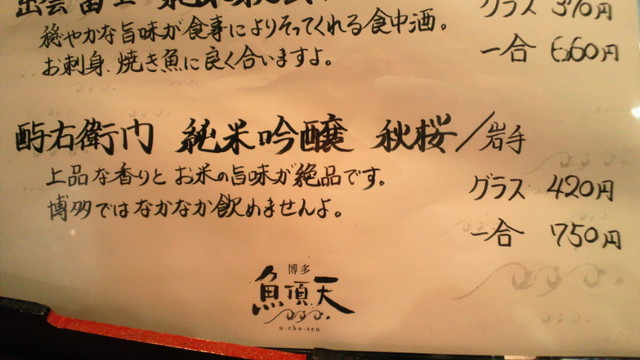 出雲富士
グラス 390円
穏やかな旨味が食事によりそってくれる食中酒。
お刺身、焼き魚に良く合いますよ。
一合 660円
酉与右衛門 純米吟醸 秋桜/岩手
上品な香りと お米の旨味が絶品です。
博多ではなかなか飲めませんよ。
グラス 420円
一合 750円
博多
魚頂天
g-cho-ten